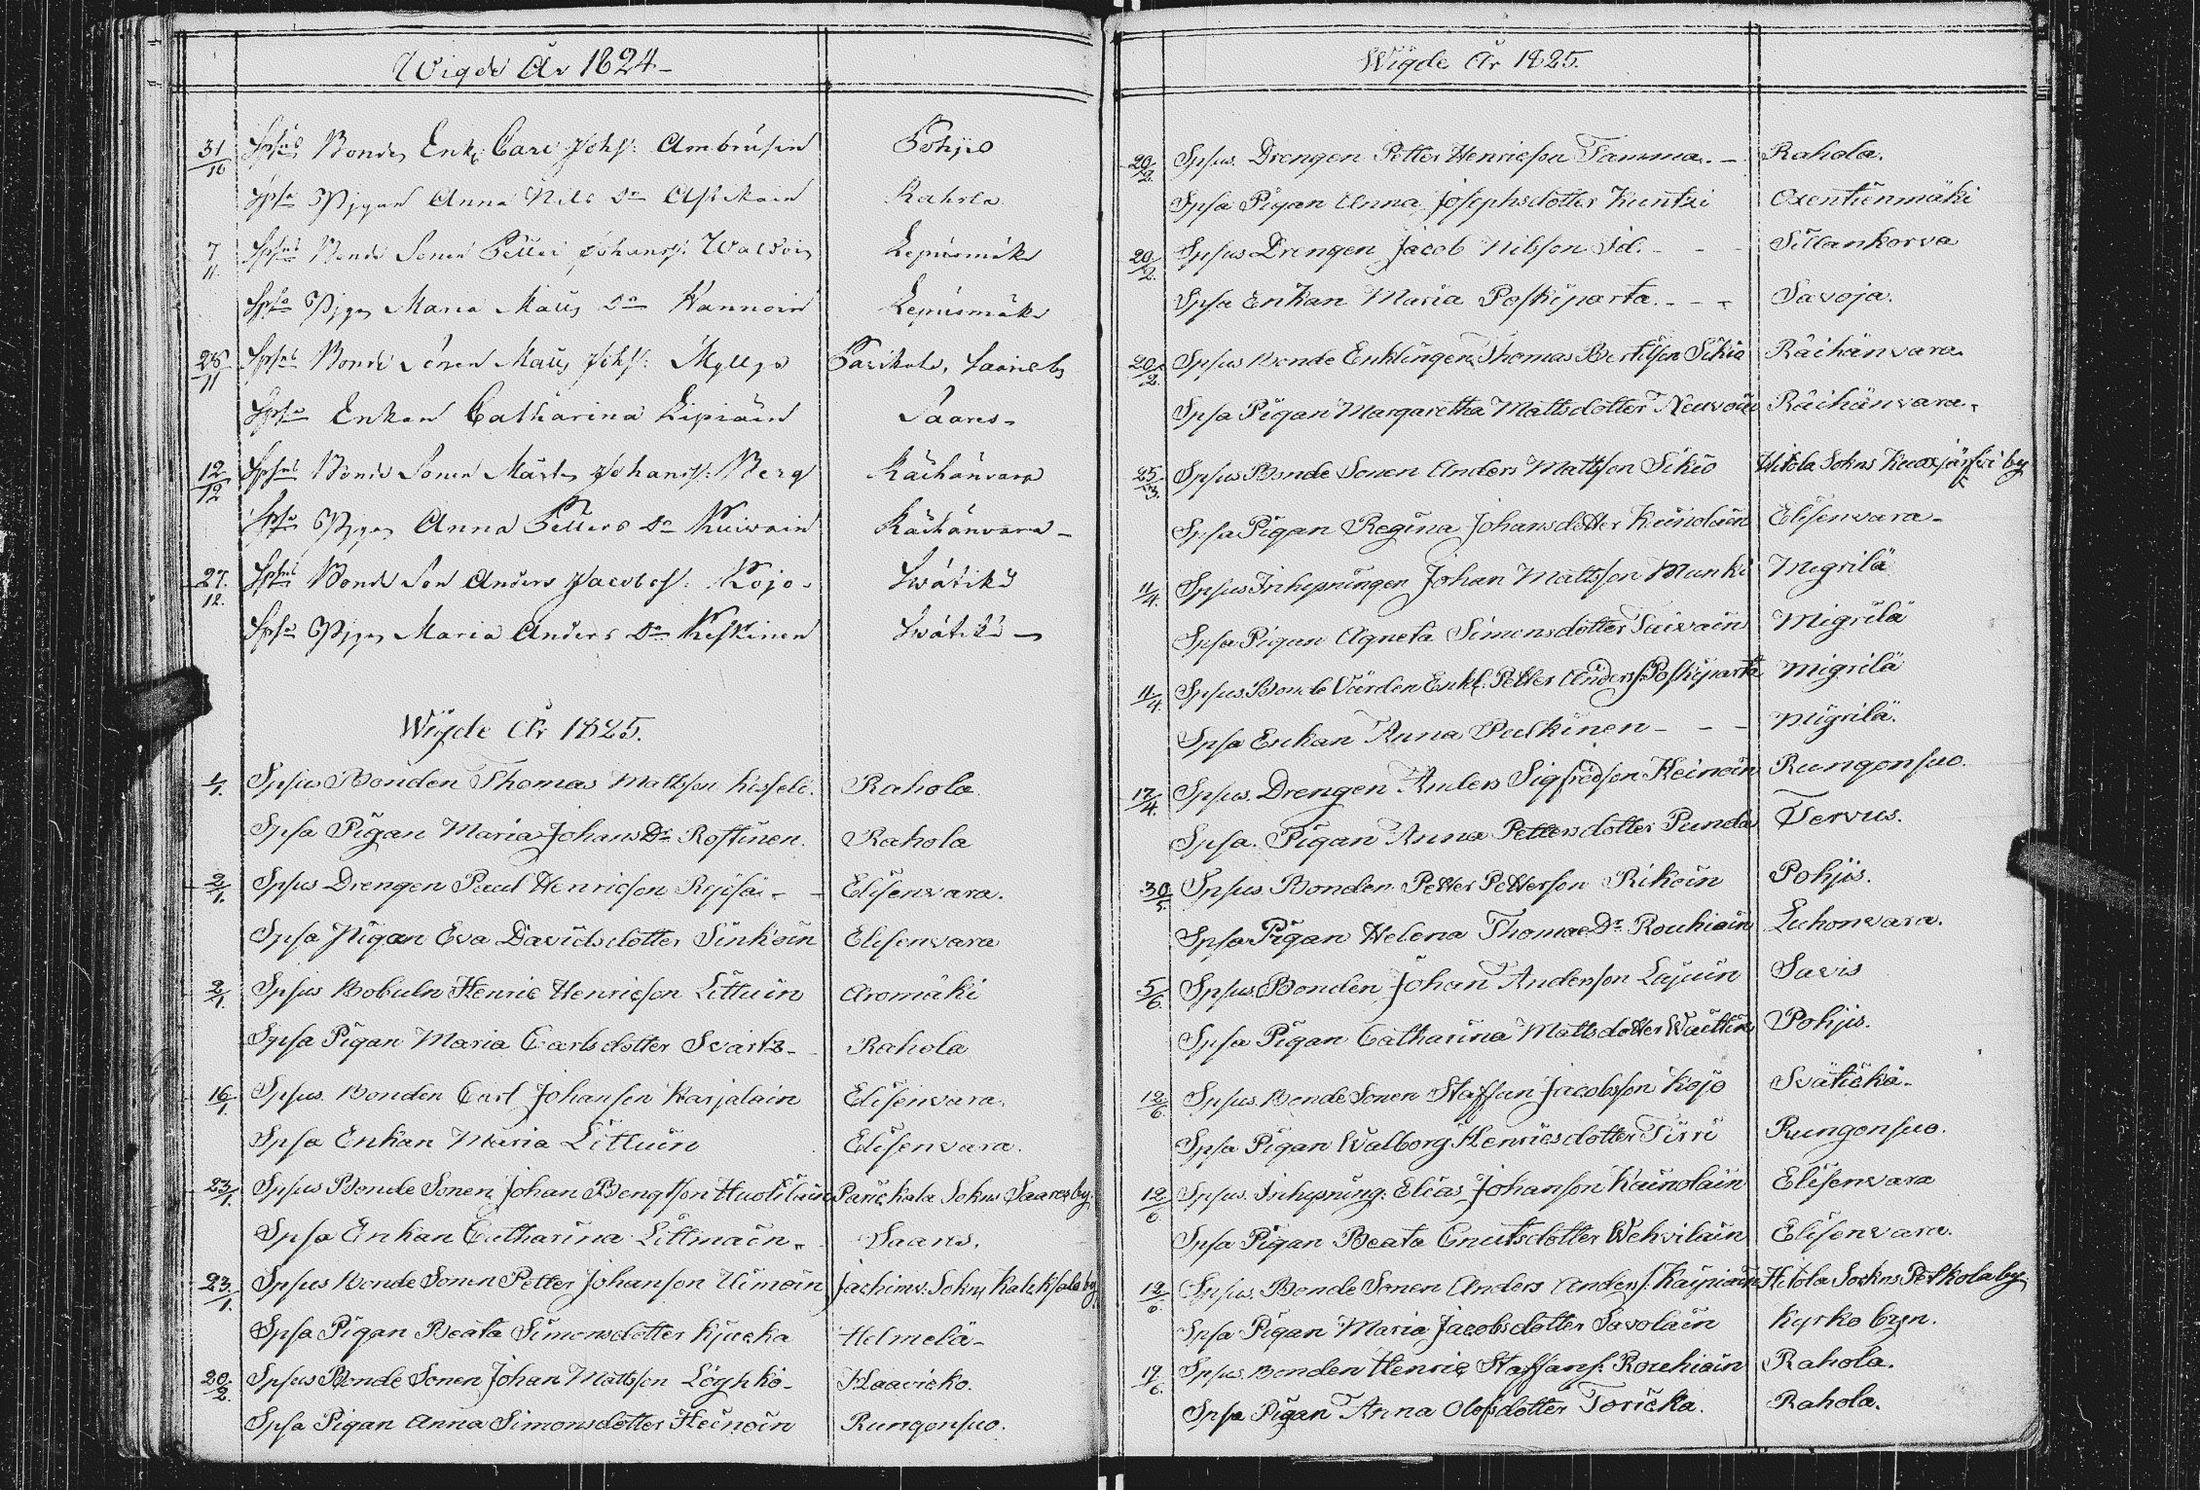 Wigde År 1824
31/10 Spsus Bonde Enkl: Carl Johs: Ambrusin Pohjis
Spsa Pigan Anna Nils Dr Askikain Rahola
7/11 Spsus Bonde Sonen Petter Johanss: Lepismäki
Spsa Pigan Maria Matts Dr Wannoin Lepismäki
28/11 Spsus Bonde Sonen Matts Johs: Myllys Parikala, Saaris by
Spsa Enkan Catharina Lipiäin Saaris
12/12 Spsus Bonde Sonen Mårten Johanss: Berg Räihänvara
Spsa Pigan Anna Petters Dr Kuivain Räihänvara
27/12 Spsus Bonde Son Anders Jacobss: Kojo Swätikä
Spsa Pigan Maria Anders Dr Keskinen Swätikä
Wigde År 1825.
1/1. Spsus Bonden Thomas Mattsson Rahola.
Spsa Pigan Maria Johans Dr Rostinen. Rahola
2/1. Spsus Drengen Paul Henricson Ryösä Elisenvara.
Spsa Pigan Eva Davidsdotter Sinkoin Elisenvara
2/1. Spsus Bobuln Henric Henricson Littuin Aromäki
Spsa Pigan Maria Carlsdotter Svarts Rahola
16/1 Spsus Bonden Carl Johanson Karjalain Elisenvara.
Spsa Enkan Maria Littuin Elisenvara.
23/1. Spsus Bonde Sonen Johan Bengtson Huolilain Parickala Sokns Saares by.
Spsa Enkan Catharina Littmain Saaris.
23/1. Spsus Bonde Sonen Petter Johanson Uimoin Jachimv. Sokns by
Spsa Pigan Beata Simonsdotter Kjucka Helmelä
20/2. Spsus Bonde Sonen Johan Mattson Löghkö Haavicko.
Spsa Pigan Anna Simonsdotter Heinoin Rungonsuo.
Wigde År 1825.
20/2. Spsus. Drengen Petter Henricson Tamma. Rahola.
Spsa Pigan Anna Josephsdotter Kuntzi Oxentienmäki
20/2. Spsus Drengen Jacob Nilsson Id. Sillankorva
Spsa Enkan Maria Poskiparta. Savoja.
20/2. Spsus Bonde Enklingen Thomas Bertilson Sikiö Räihänvara
Spsa Pigan Margaretha Mattsdotter Neuvoin Räihänvara.
25/3. Spsus Bonde Sonen Anders Mattson Sikiö Hitola Sokns by
Spsa Pigan Regina Johansdotter Elisenvara
11/4. Spsus Inhysningen Johan Mattsson Munki Migrilä
Spsa Pigan Agneta Simonsdotter Taivain Migrilä
11/4. Spsus Bonde Värden Enkl: Petter Anderss: Poskiparta Migrilä
Spsa Enkan Anna Pulkinen Migrilä.
17/4. Spsus. Drengen Anders Sigfridson Heinoin Rungonsuo.
Spsa. Pigan Anna Pettersdotter Punda Tervus.
30/5. Spsus. Bonden Petter Petterson Rikoin Pohjis.
Spsa Pigan Helena Thomae Dr Rouhiain Luhonvara.
5/6. Spsus. Bonden Johan Anderson Lajuin Savis
Spsa Pigan Catharina Mattsdotter Wäittin Pohjis.
12/6. Spsus. Bonde Sonen Staffan Jacobsson Kojo Svätickä.
Spsa Pigan Walborg Henricsdotter Tirri Rungonsuo.
12/6 Spsus. Inhysning: Elias Johanson Kainolain Elisenvara
Spsa Pigan Beata Cnutsdotter Wehvilain Elisenvara.
12/6 Spsus. Bonde Sonen Anders Anderss: Käypiäin Hitola Sokns Petkola by.
Spsa Pigan Maria Jacobsdotter Savolain Kyrko byn.
17/6. Spsus. Bonden Henric Staffans: Rouhiain Rahola.
Spsa Pigan Anna Olofsdotter Toricka. Rahola.